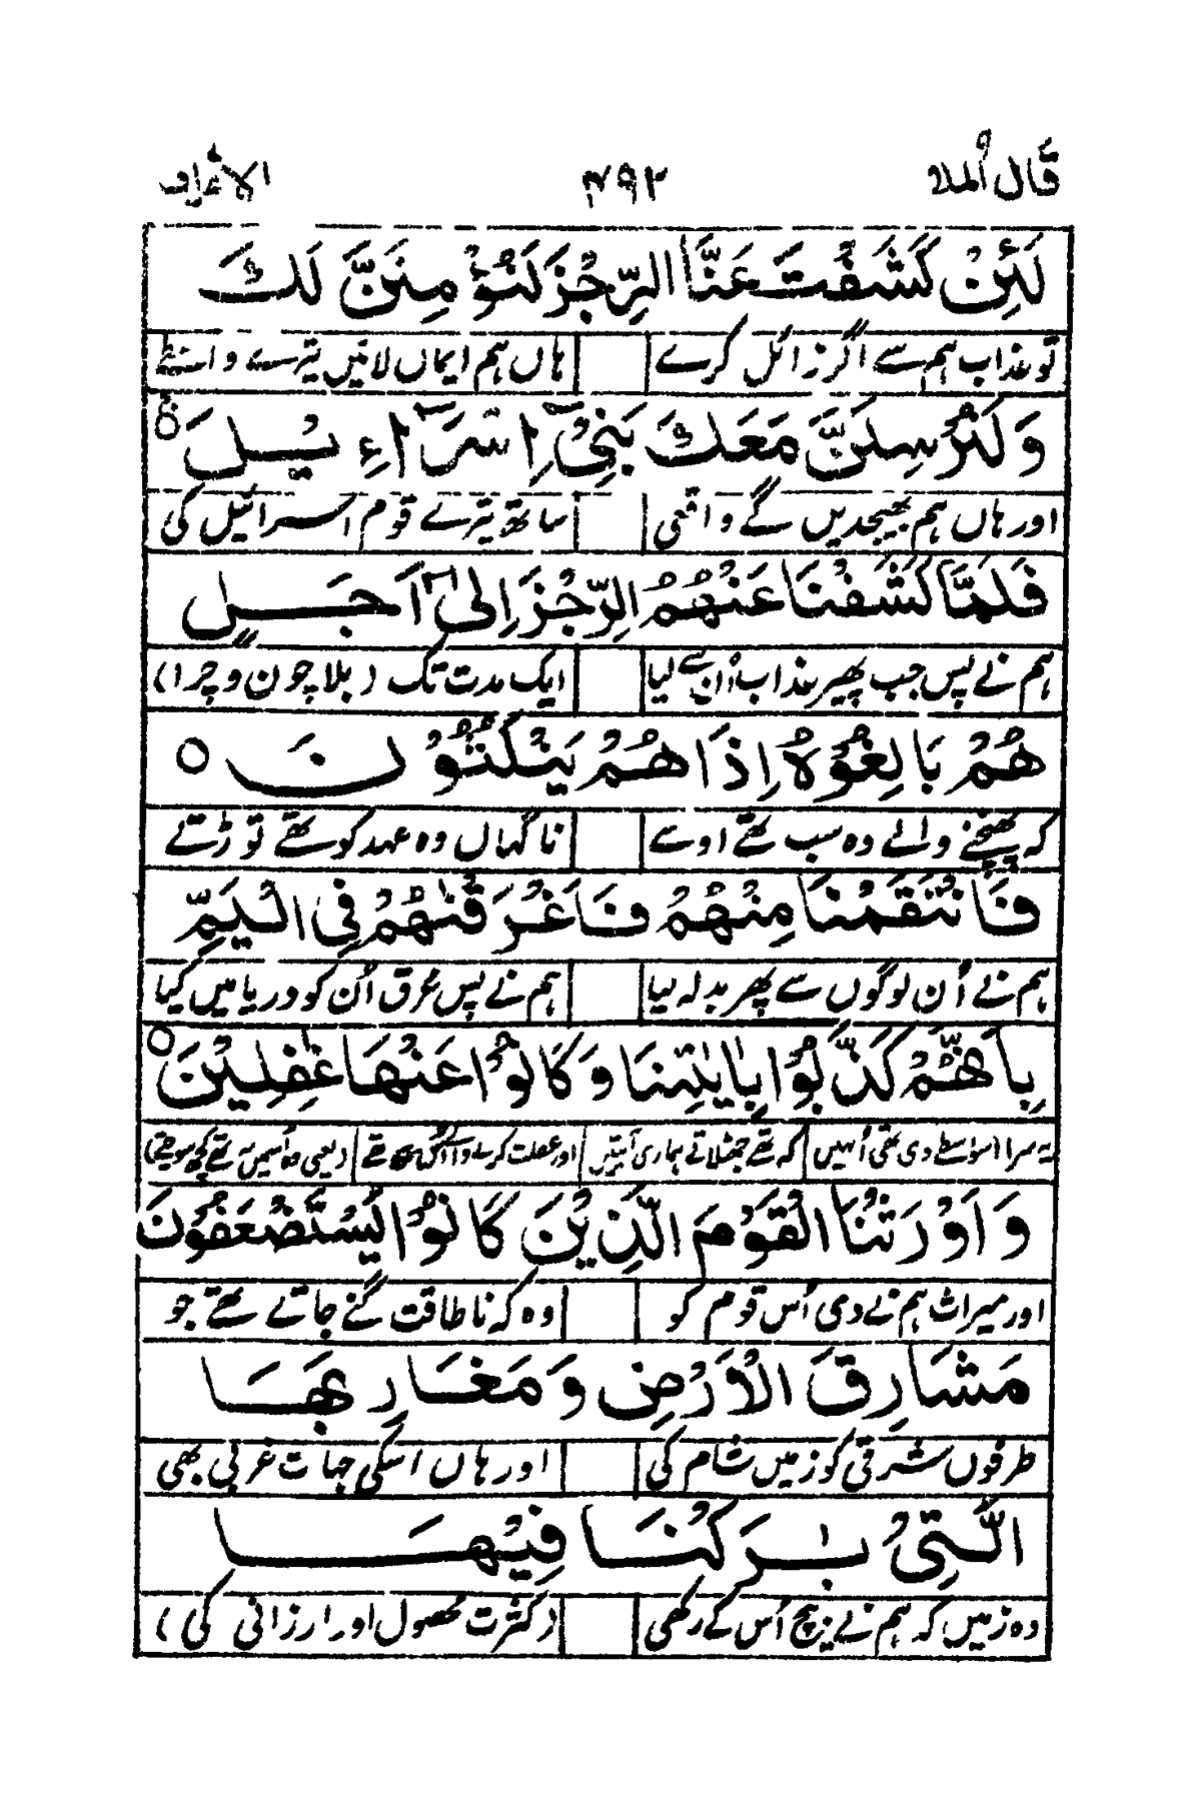 قَالَ الْمَلَاُ ۴۹۲ الْاَعْرَاف
لَئِنْ كَشَفْتَ عَنَّا الرِّجْزَ لَنُؤْمِنَنَّ لَكَ
تو عذاب ہم سے اگر زائل کرے ہاں ہم ایماں لائیں تیرے واسطے
وَلَنُرْسِلَنَّ مَعَكَ بَنِىْٓ اِسْرَآءِيْلَ ۝
اور ہاں ہم بھیجدیں گے واقعی ساتھ تیرے قوم اسرائیل کی
فَلَمَّا كَشَفْنَا عَنْهُمُ الرِّجْزَ اِلٰٓى اَجَلٍ
ہم نے پس جب پھیر عذاب اُن سے لیا ایک مدت تک (بلا چون و چرا)
هُمْ بَالِغُوْهُ اِذَا هُمْ يَنْكُثُوْنَ ۝
کہ پہنچنے والے وہ سب تھے اوسے ناگہاں وہ عہد کو تھے توڑتے
فَانْتَقَمْنَا مِنْهُمْ فَاَغْرَقْنٰهُمْ فِى الْيَمِّ
ہم نے اُن لوگوں سے پھر بدلہ لیا ہم نے پس غرق اُن کو دریا میں کیا
بِاَنَّهُمْ كَذَّبُوْا بِاٰيٰتِنَا وَكَانُوْا عَنْهَا غٰفِلِيْنَ ۝
یہ سزا اسواسطے دی تھی اُنہیں کہ تھے جھٹلاتے ہماری آیتیں اور غفلت کرنے والے تھے (یعنی نہ اُسمیں تھے کچھ سوچتے)
وَاَوْرَثْنَا الْقَوْمَ الَّذِيْنَ كَانُوْا يُسْتَضْعَفُوْنَ
اور میراث ہم نے دی اُس قوم کو وہ کہ ناطاقت گنے جاتے تھے جو
مَشَارِقَ الْاَرْضِ وَمَغَارِبَهَا
طرفوں شرقی کو زمیں شام کی اور ہاں اسکی جہات غربی بھی
الَّتِىْ بٰرَكْنَا فِيْهَا
وہ زمیں کہ ہم نے بیچ اُس کے رکھی (کثرت محصول اور ارزانی کی)